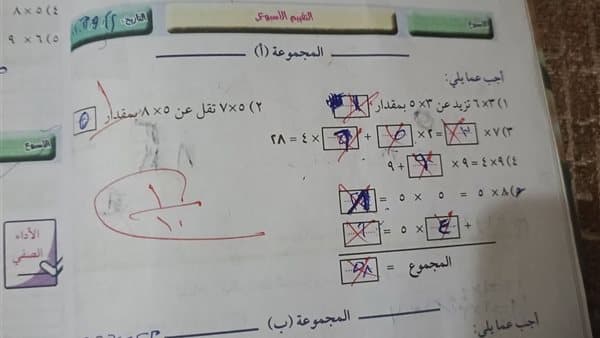 ٤) ٥ × ٨
٥) ٦ × ٩
الأسبوع
التقييم الأسبوعي
التاريخ:
المجموعة (أ)
أجب عما يلي:
١) ٣×٦ تزيد عن ٣×٥ بمقدار
٢) ٥×٧ تقل عن ٥×٨ بمقدار ٥
٣) ٧× ٣ = ٢× ٥ + × ٤ = ٢٨
٤) ٩×٤ = ٩× ٩ + ٩
٥) ٨× ٥ = ٥ × ٥ = ٨
+ ٤ × ٥ =
المجموع = ٥٨
الأسبوع
١
١٠
الأداء
الصفي
المجموعة (ب)
أجب عما يلي: